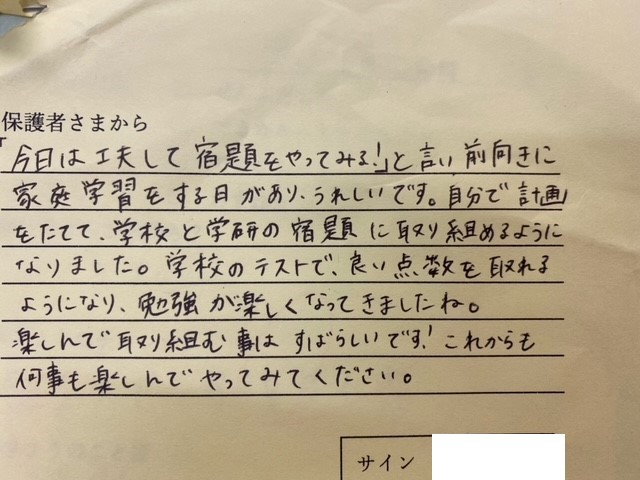 保護者さまから
「今日は工夫して宿題をやってみる!」と言い前向きに
家庭学習をする日があり、うれしいです。自分で計画
をたてて、学校と学研の宿題に取り組めるように
なりました。学校のテストで、良い点数を取れる
ようになり、勉強が楽しくなってきましたね。
楽しんで取り組む事はすばらしいです!これからも
何事も楽しんでやってみてください。
サイン